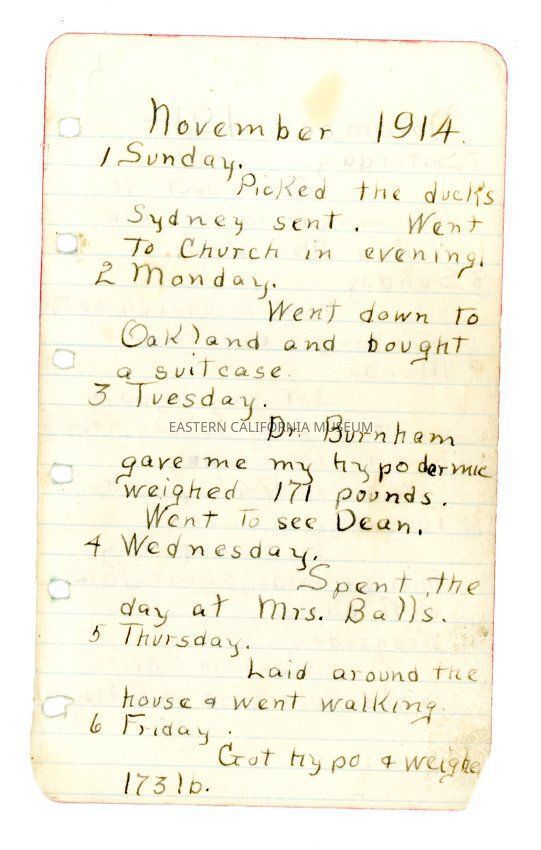 November 1914.
1 Sunday.
Picked the ducks
Sydney sent. Went
To Church in evening.
2 Monday.
Went down to
Oakland and bought
a suitcase.
3 Tuesday.
EASTERN CALIFORNIA MUSEUM
Dr. Burnham
gave me my hypodermic
weighed 171 pounds.
Went To see Dean.
4 Wednesday.
Spent the
day at Mrs. Balls.
5 Thursday.
Laid around the
house & went walking.
6 Friday.
Got hypo & weighe
173 lb.